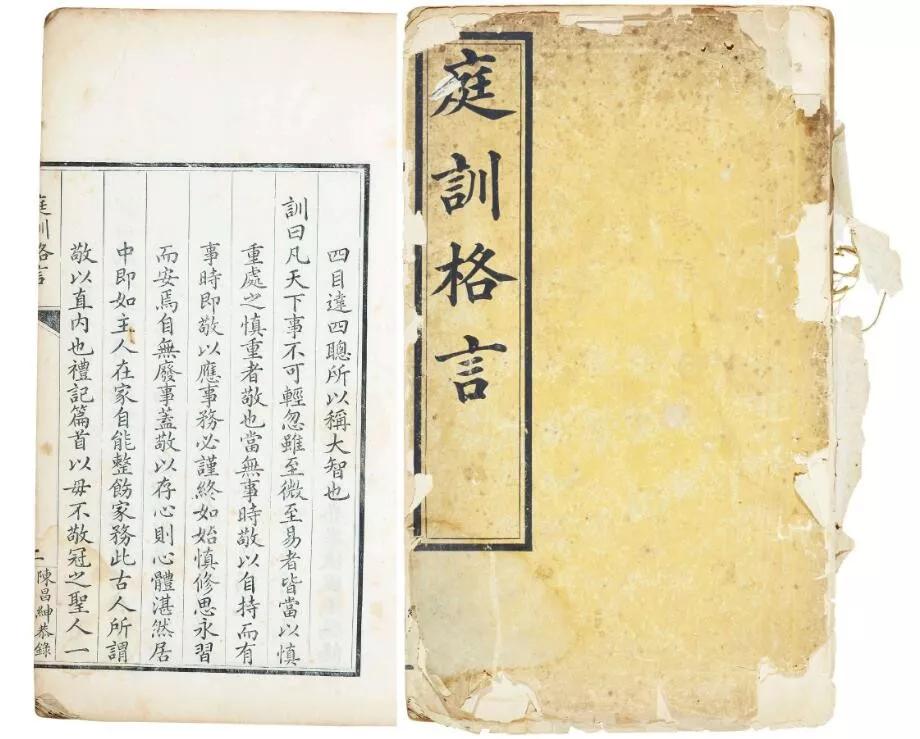 庭訓格言
四目達四聰所以稱大智也
訓曰凡天下事不可輕忽雖至微至易者皆當以慎
重處之慎重者敬也當無事時敬以自持而有
事時即敬以應事務必謹終如始慎修思永習
而安焉自無廢事蓋敬以存心則心體湛然居
中即如主人在家自能整飭家務此古人所謂
敬以直内也禮記篇首以毋不敬冠之聖人一
庭訓格言
二
陳昌紳恭錄